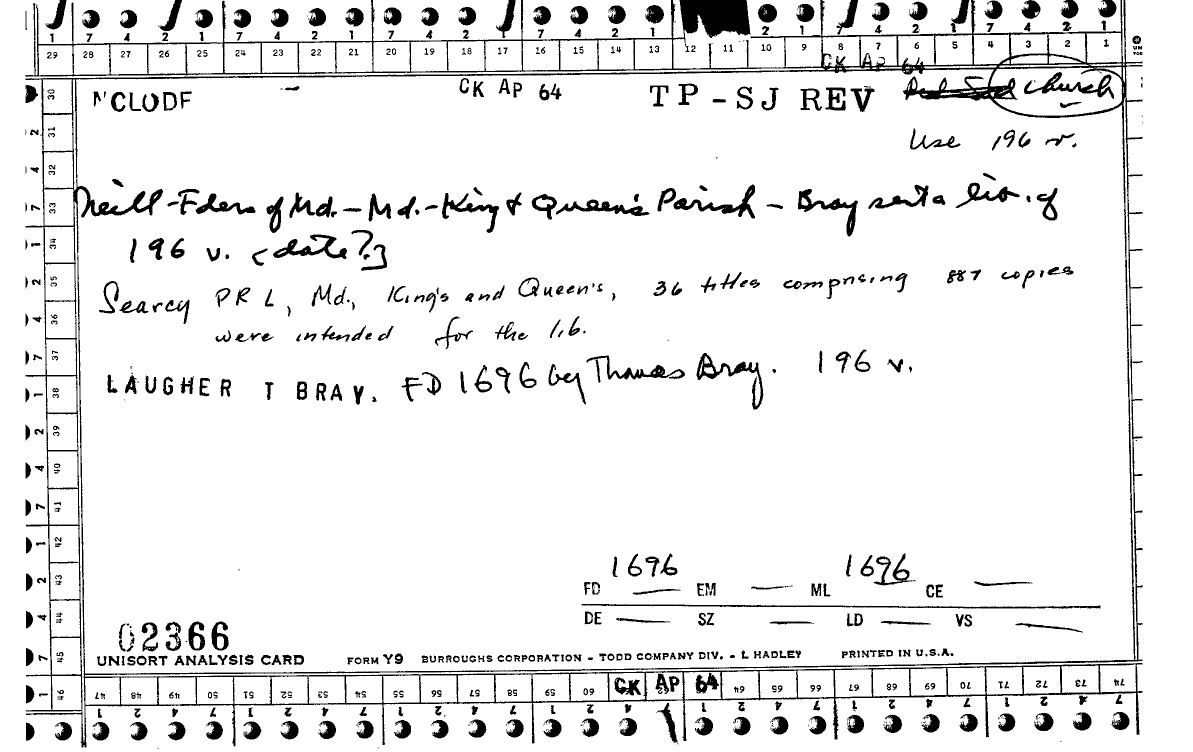 1 7 4 2 1 7 4 2 1 7 4 2 1 2 1 7 4 2 1 7 4 2 1
29 28 27 26 25 24 23 22 21 20 19 18 17 16 15 14 13 12 11 10 9 8 7 6 5 4 3 2 1
CK AP 64
NCLODF CK AP 64 TP-SJ REV church
Use 196 v.
Neill-Fders of Md.-Md.-King & Queen's Parish - Bray sent a lib. of
196 v. [date?]
Searcy PRL, Md., King's and Queen's, 36 titles comprising 887 copies
were intended for the lib.
LAUGHER T BRAY. FD 1696 by Thomas Bray. 196 v.
30
2 31
4 32
7 33
1 34
2 35
4 36
7 37
1 38
2 39
4 40
7 41
1 42
2 43
4 44
7 45
1 46
FD 1696 EM — ML 1696 CE —
DE — SZ — LD — VS —
02366
UNISORT ANALYSIS CARD FORM Y9 BURROUGHS CORPORATION - TODD COMPANY DIV. - L HADLEY PRINTED IN U.S.A.
47 48 49 50 51 52 53 54 55 56 57 58 59 60 CK AP 64 64 65 66 67 68 69 70 71 72 73 74
1 2 4 7 1 2 4 7 1 2 4 7 1 2 4 7 1 2 4 7 1 2 4 7 1 2 4 7